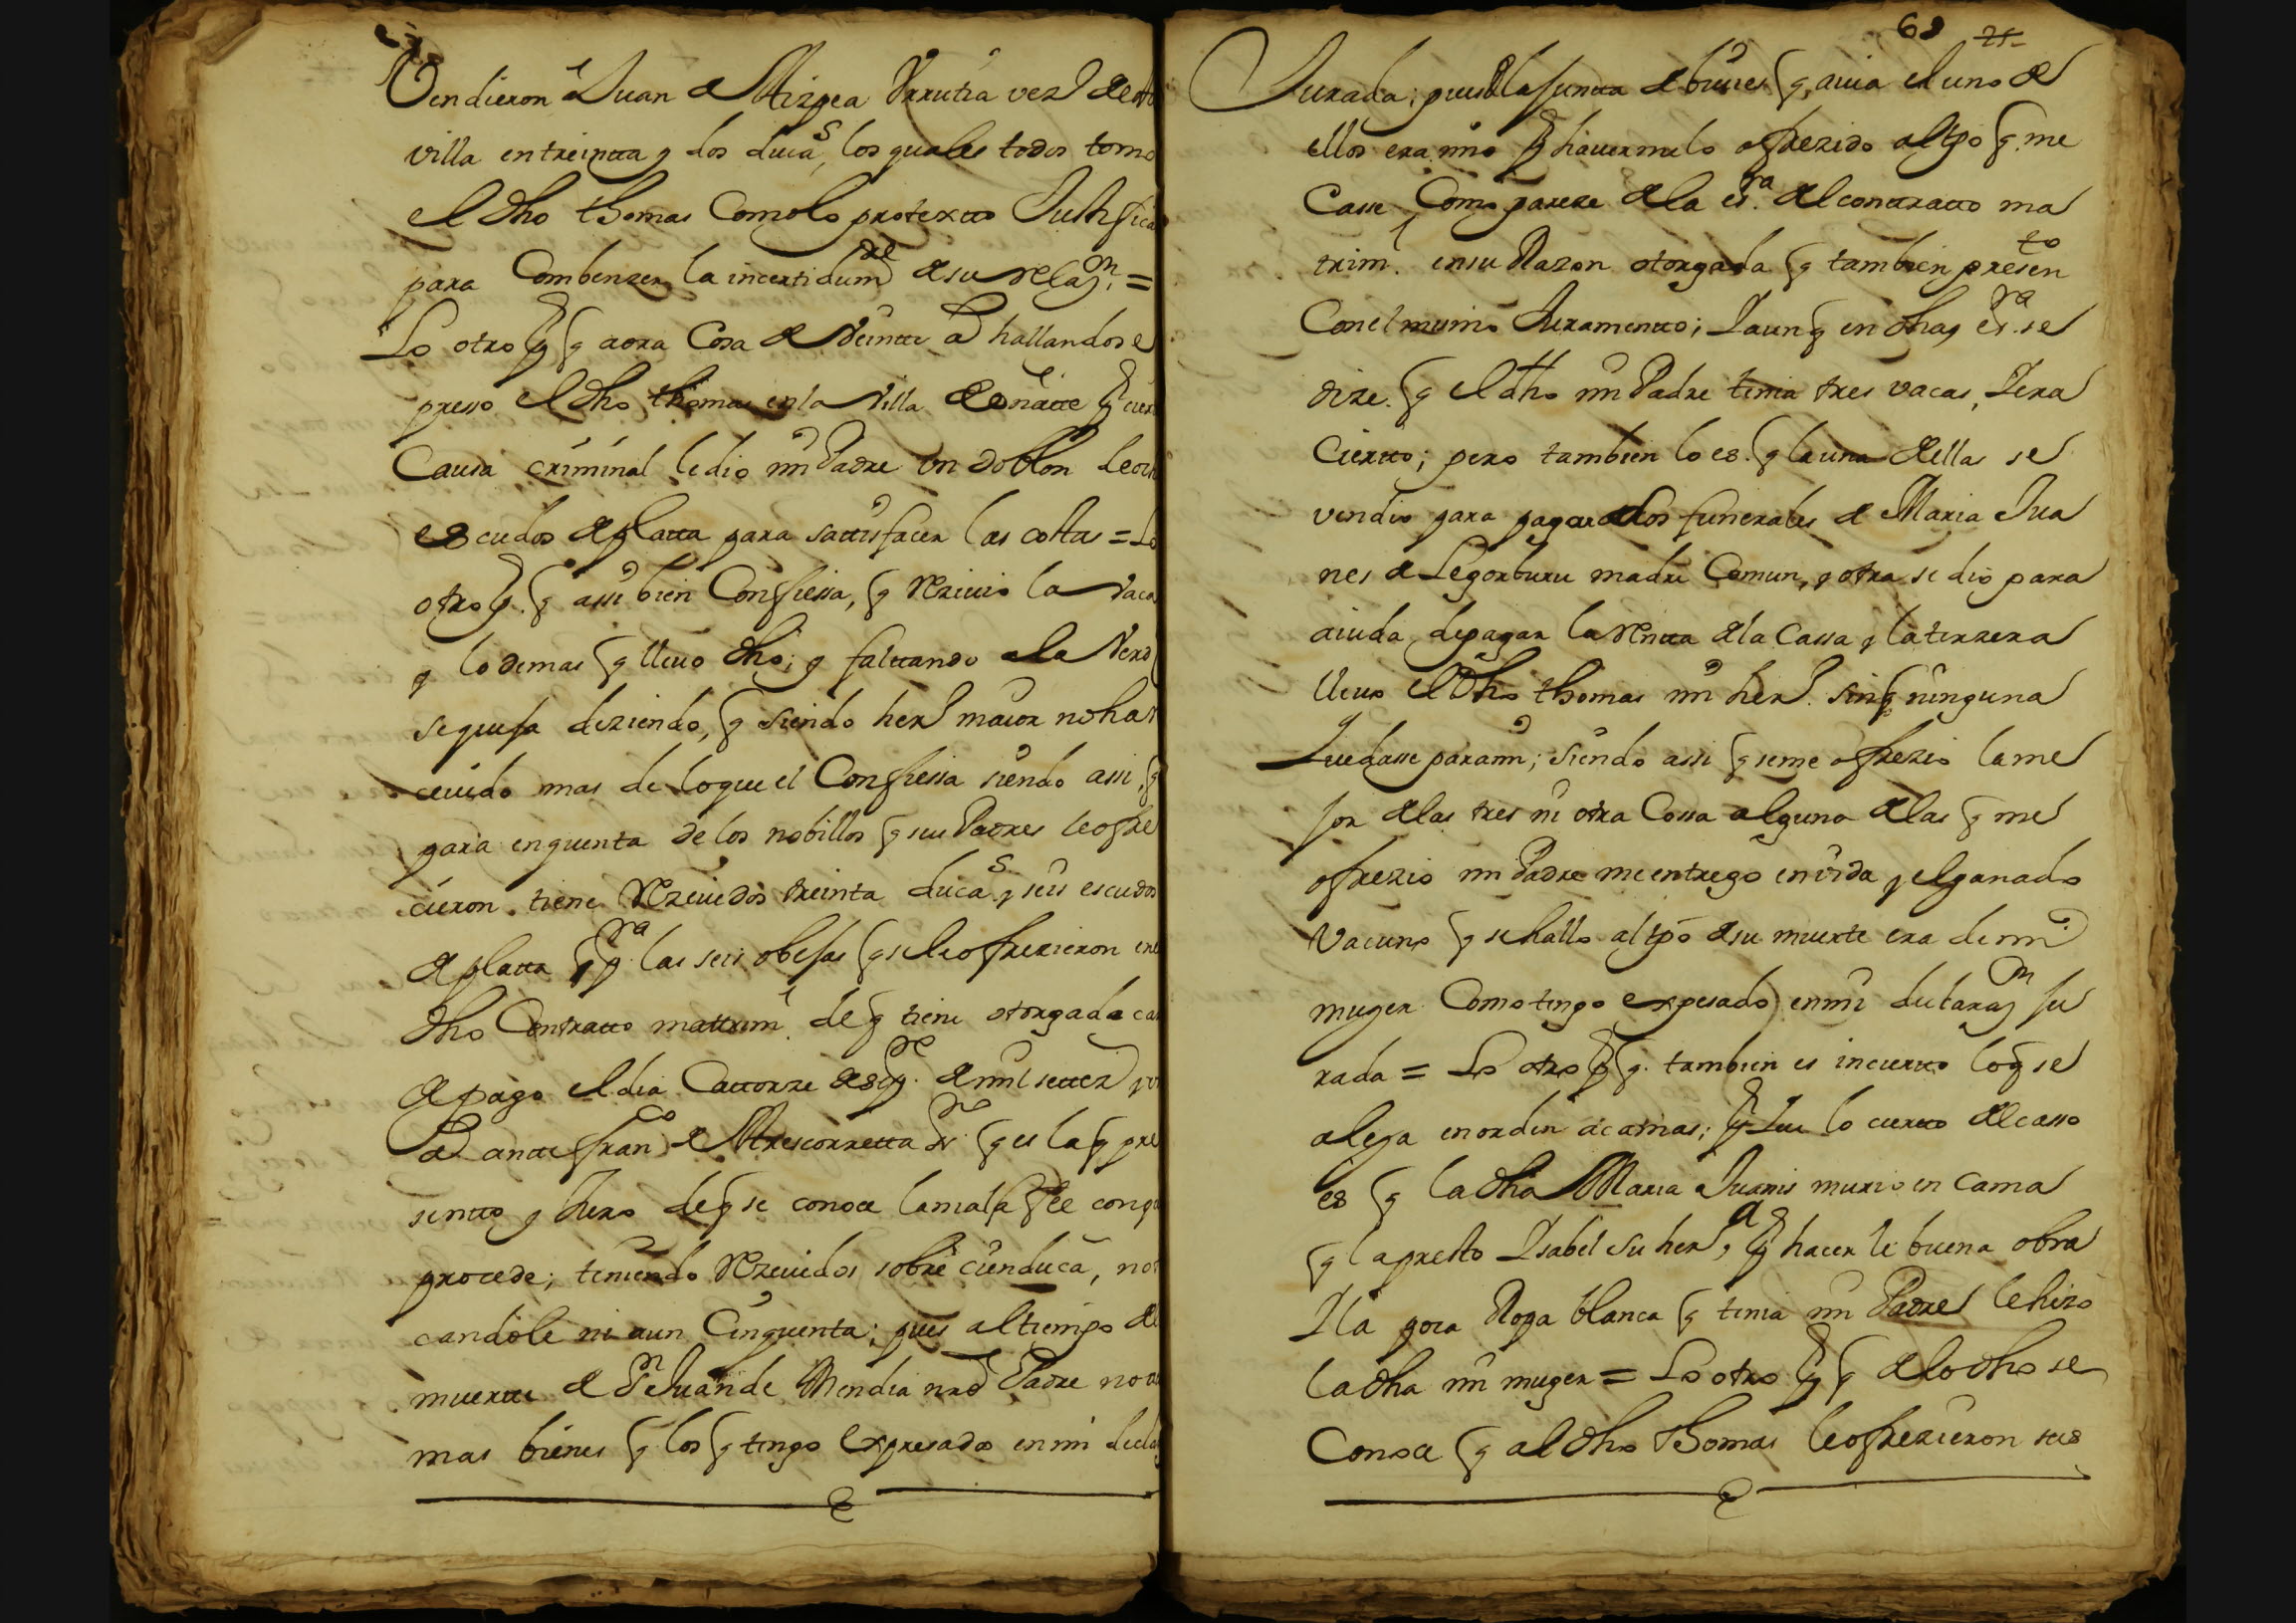 Vendieron a Juan de Aizpea Vrrutia vezº de esta
villa en treintta y dos ducaˢ, los quales todos tomo
el dho thomas Como lo protextto Justifica
para Combenzer la incertidumᵈᵉ de su relazⁿ. =
Lo otro pʳ q aora Cosa de Veintte aˢ hallandose
preso el dho thomas en la Villa de oñatte pʳ cier
Causa criminal le dio mi Padre Vn doblon de ocho
escudos de platta para sattisfacer las costas = Lo
otro pʳ. q assi bien Confiessa, q rezivio la Vaca
y lo demas q llevo dho; y falttando a la Verd
se quesa deziendo, q siendo herº maior no ha re
cevido mas de lo que el Confiessa siendo assi, q
para en quenta de los nobillos q sus Padres le ofre
cieron tiene Rezeuidos treinta ducaˢ y seis escudos
de platta y pʳᵃ las seis obejas q se le ofrezieron en el
dho Contratto mattrimˡ. de q tiene otorgada car
de pago el dia Cattorze de Sepʳᵉ. de mil settezº y
aˢ antte franᶜᵒ de Atrescorretta esⁿᵒ. q es la q pre
sentto y Juro de q se conoce la mala fee con q
procede; teniendo Rezeuidos sobre cien duca, no to
candole ni aun Cinquenta; pues al tiempo de
muertte de Pº Juan de Mendia nrō Padre no a
mas bienes q los q tengo expresados en mi decla
68 25
Jurada; pues de la juntta de bueies q auia el uno de
ellos era mio pʳ hauermelo ofrezido al tpō q. me
Casse, Como pareze de la esʳᵃ. del conttratto ma
trimˡ. en su Razon otorgada q tambien presenᵗᵒ
Con el mismo Juramentto; Y aunq en dha esʳᵃ. se
dize. q el dho mi Padre tenia tres vacas, Y era
Ciertto; pero tambien lo es. q la una de ellas se
vendio para pagar los funerales de Maria Jua
nes de Legorburu madre Comun, y otra se dio para
aiuda de pagar la Rentta de la Cassa y la terzera
lleuo el dho thomas mi herº. sin q ninguna
Quedasse para mi; siendo assi q se me ofrezio la me
jor de las tres ni otra Cossa alguna de las q me
ofrezio mi Padre me entrego en vida y el ganado
Vacuno q se hallo al tpō de su muerte era de mi
muger Como tengo expesado en mi declarazⁿ Ju
rada = Lo otro pʳ q. tambien es inciertto lo q se
alega en orden a camas; pʳ que lo ciertto del casso
es q la dha Maria Juanis murio en cama
q la presto Isabel su herᵃ, pʳ hacer le buena obra
Y la poca Ropa blanca q tenia mi Padre le hizo
la dha mi muger = Lo otro pʳ q de lo dho se
Conoce q al dho Thomas le ofrezieron sus